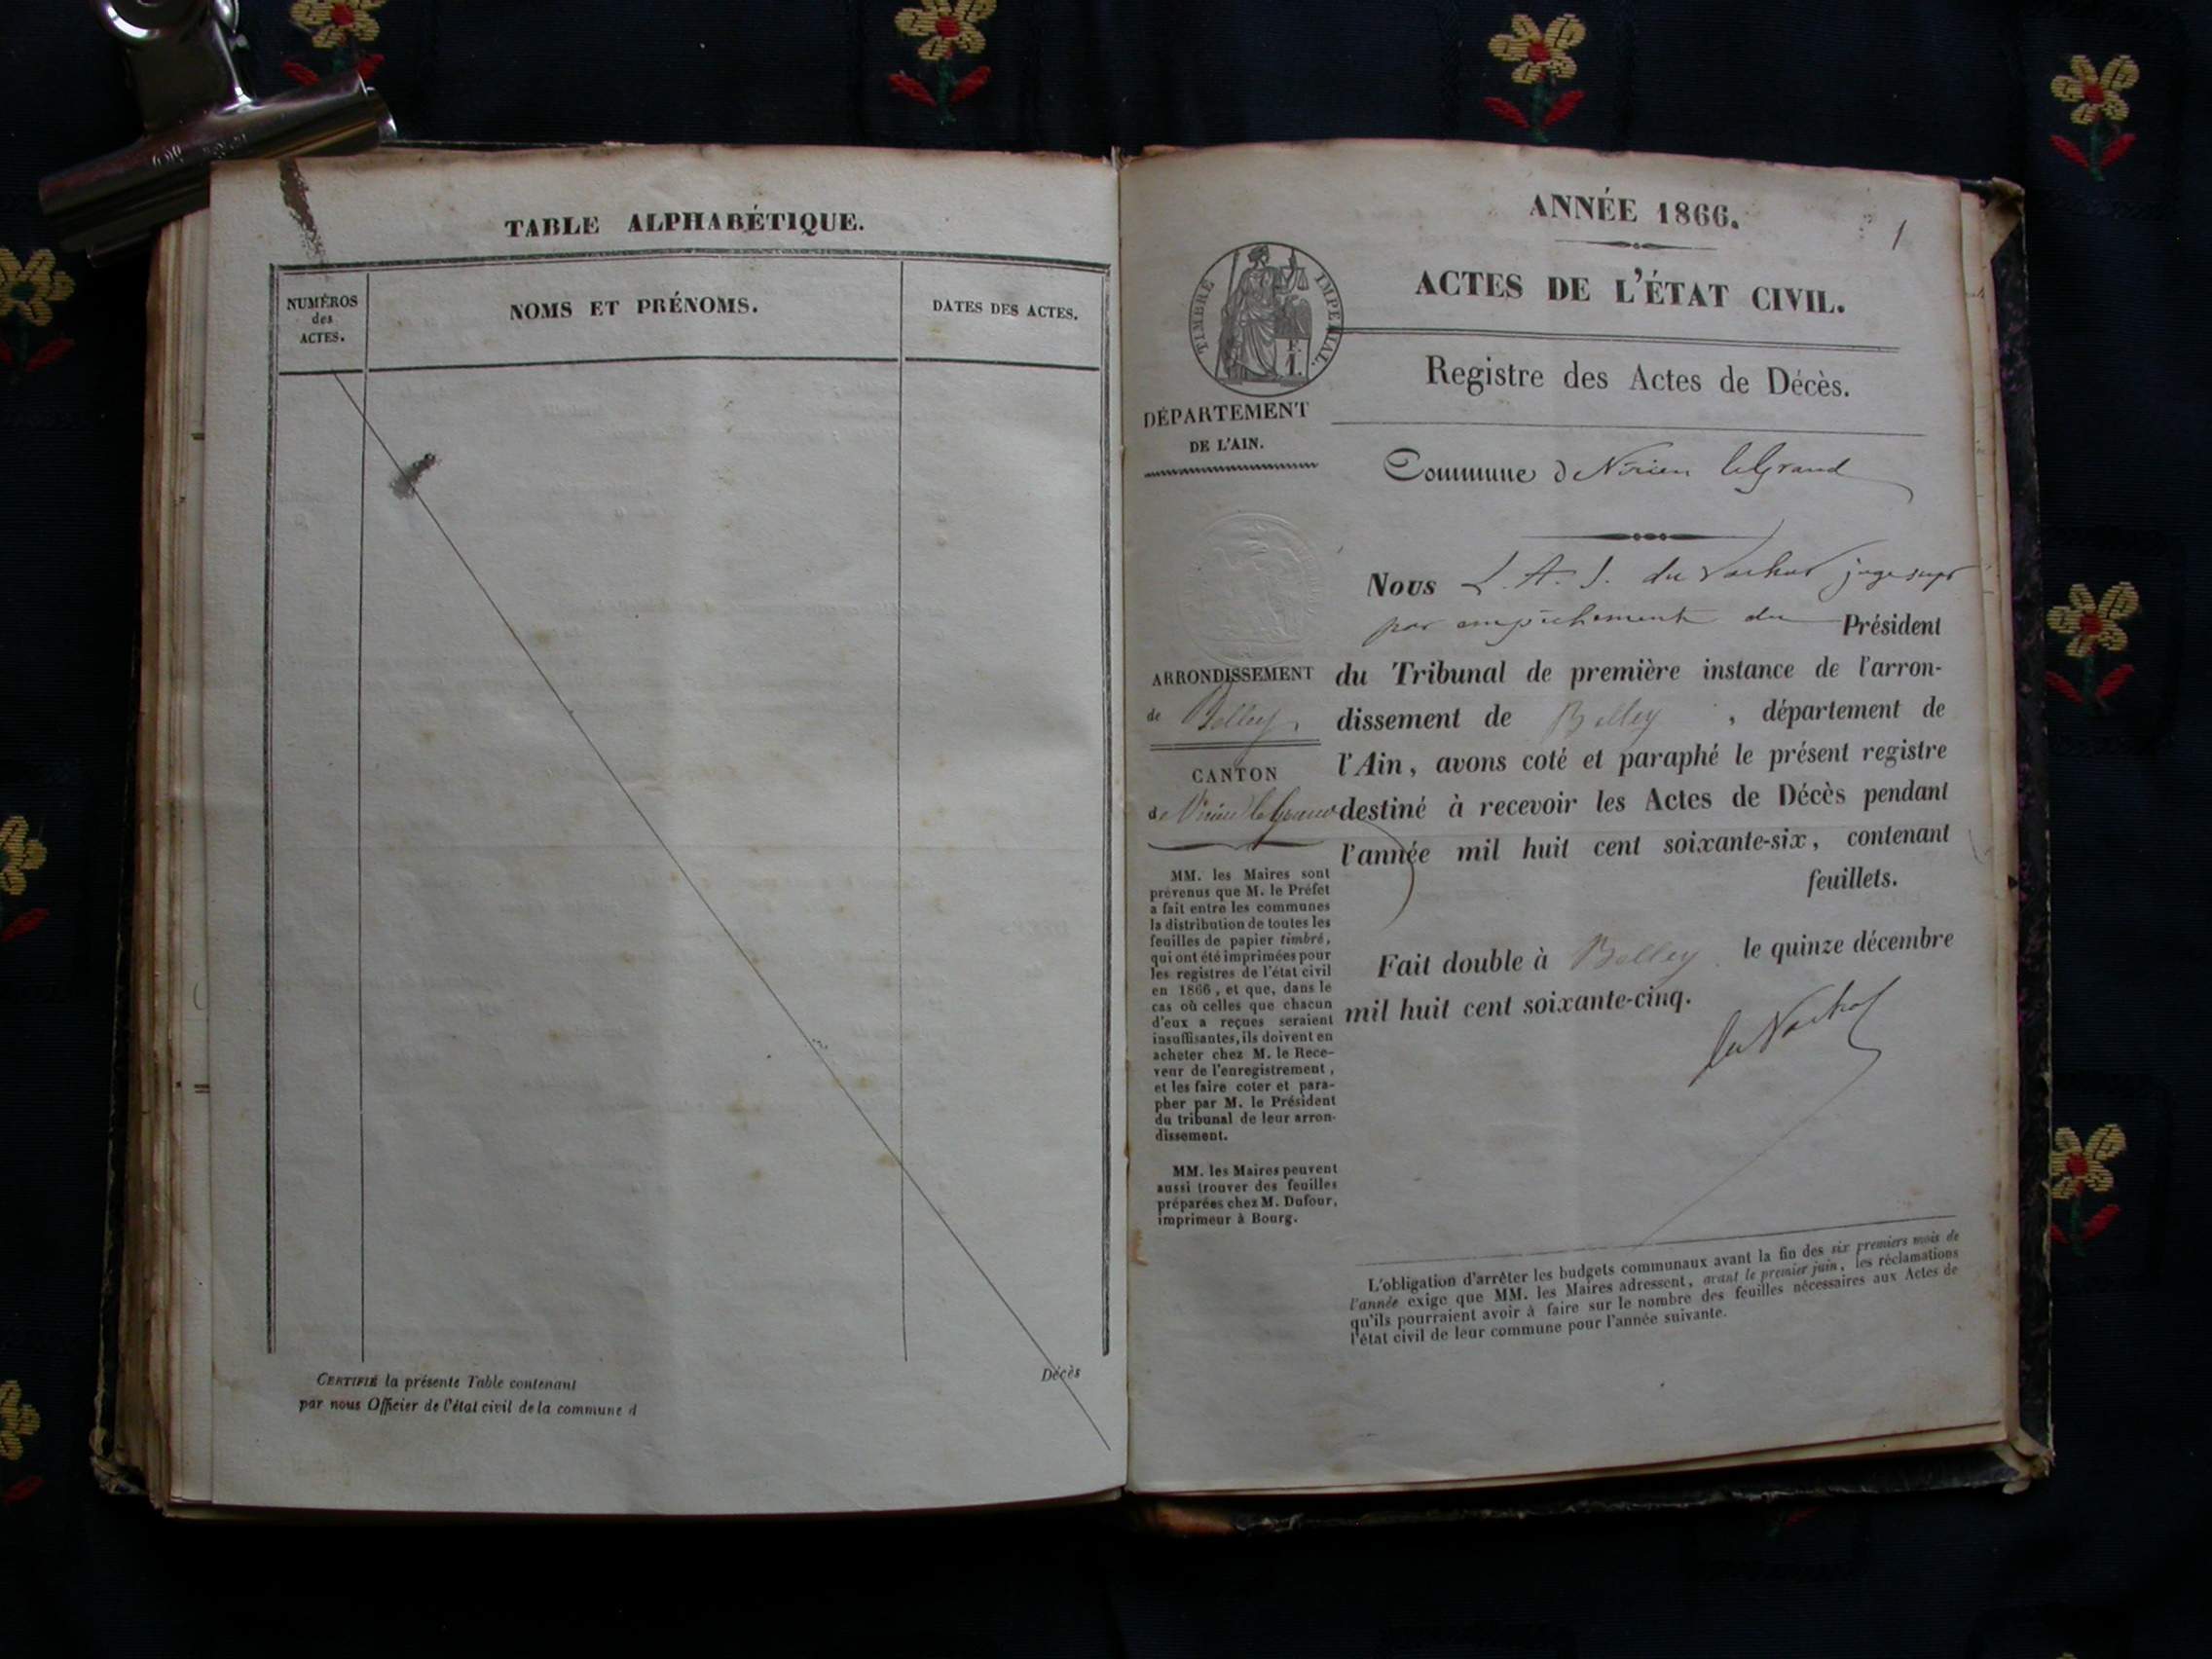 TABLE ALPHABÉTIQUE.
NUMÉROS
des
ACTES.
NOMS ET PRÉNOMS.
DATES DES ACTES.
CERTIFIÉ la présente Table contenant
Décès
par nous Officier de l'état civil de la commune d
ANNÉE 1866.
1
ACTES DE L'ÉTAT CIVIL.
TIMBRE IMPERIAL.
F.
1.
Registre des Actes de Décès.
DÉPARTEMENT
DE L'AIN.
Commune de Virieu leGrand
Nous L. A. J. du juge supt
par empêchement du Président
du Tribunal de première instance de l'arron-
dissement de Belley, département de
l'Ain, avons coté et paraphé le présent registre
destiné à recevoir les Actes de Décès pendant
l'année mil huit cent soixante-six, contenant
feuillets.
Fait double à Belley le quinze décembre
mil huit cent soixante-cinq.
ARRONDISSEMENT
de Belley
CANTON
de Virieu leGrand
MM. les Maires sont
prévenus que M. le Préfet
a fait entre les communes
la distribution de toutes les
feuilles de papier timbré,
qui ont été imprimées pour
les registres de l'état civil
en 1866, et que, dans le
cas où celles que chacun
d'eux a reçues seraient
insuffisantes, ils doivent en
acheter chez M. le Rece-
veur de l'enregistrement,
et les faire coter et para-
pher par M. le Président
du tribunal de leur arron-
dissement.
MM. les Maires peuvent
aussi trouver des feuilles
préparées chez M. Dufour,
imprimeur à Bourg.
L'obligation d'arrêter les budgets communaux avant la fin des six premiers mois de
l'année exige que MM. les Maires adressent, avant le premier juin, les réclamations
qu'ils pourraient avoir à faire sur le nombre des feuilles nécessaires aux Actes de
l'état civil de leur commune pour l'année suivante.